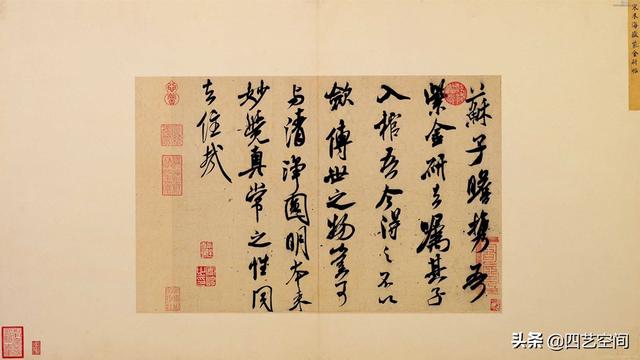 宋米海嶽紫金研帖
蘇子瞻携吾
紫金研去嘱其子
入棺吾今得之不以
歛傳世之物豈可
与清淨圓明本来
妙覺真常之性同
去住哉
头条 @四艺空间